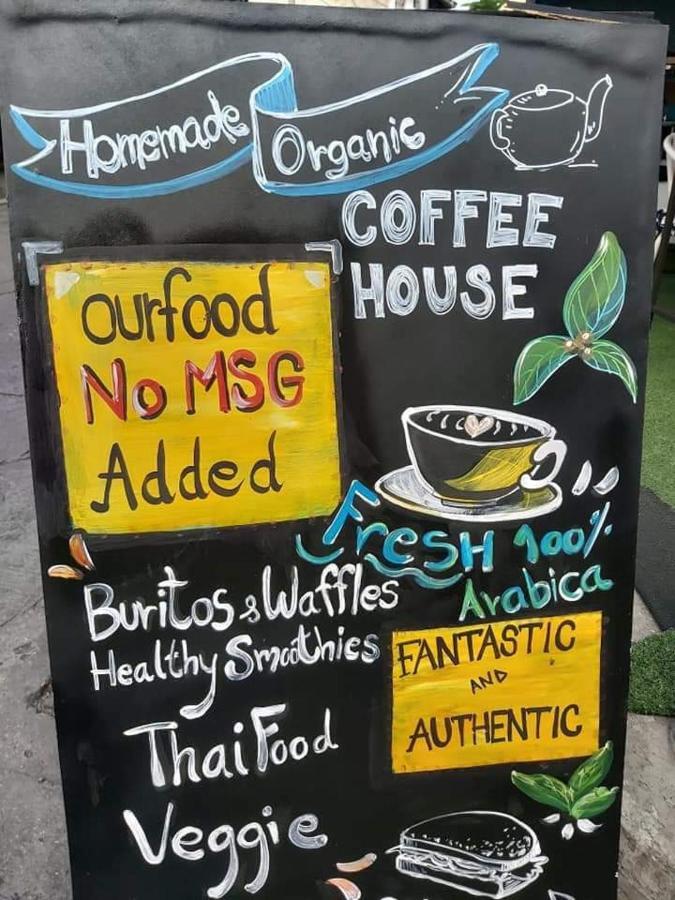 Homemade Organic
COFFEE
HOUSE
Ourfood
No MSG
Added
Fresh 100%
Arabica
Buritos & Waffles
Healthy Smoothies
FANTASTIC
AND
AUTHENTIC
Thai Food
Veggie